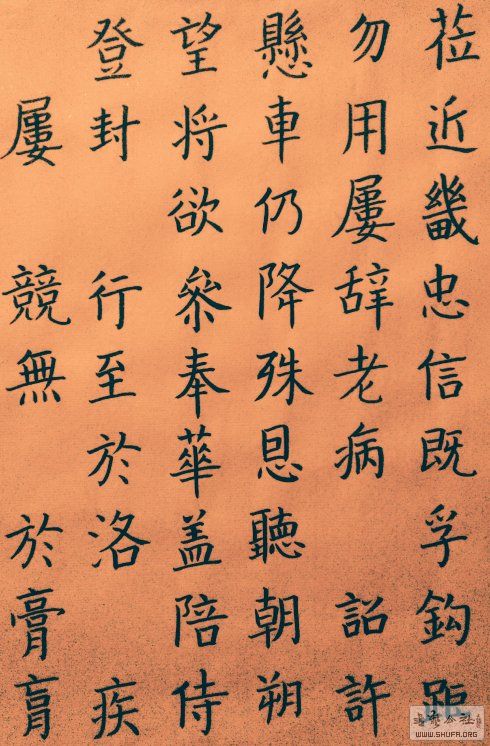 莅近畿忠信既孚鈎距
勿用屢辞老病 詔許
懸車仍降殊恩聽朝朔
望将欲叅奉華盖陪侍
登封 行至於洛 疾
屢 競無 於膏肓
WWW.SHUFA.ORG